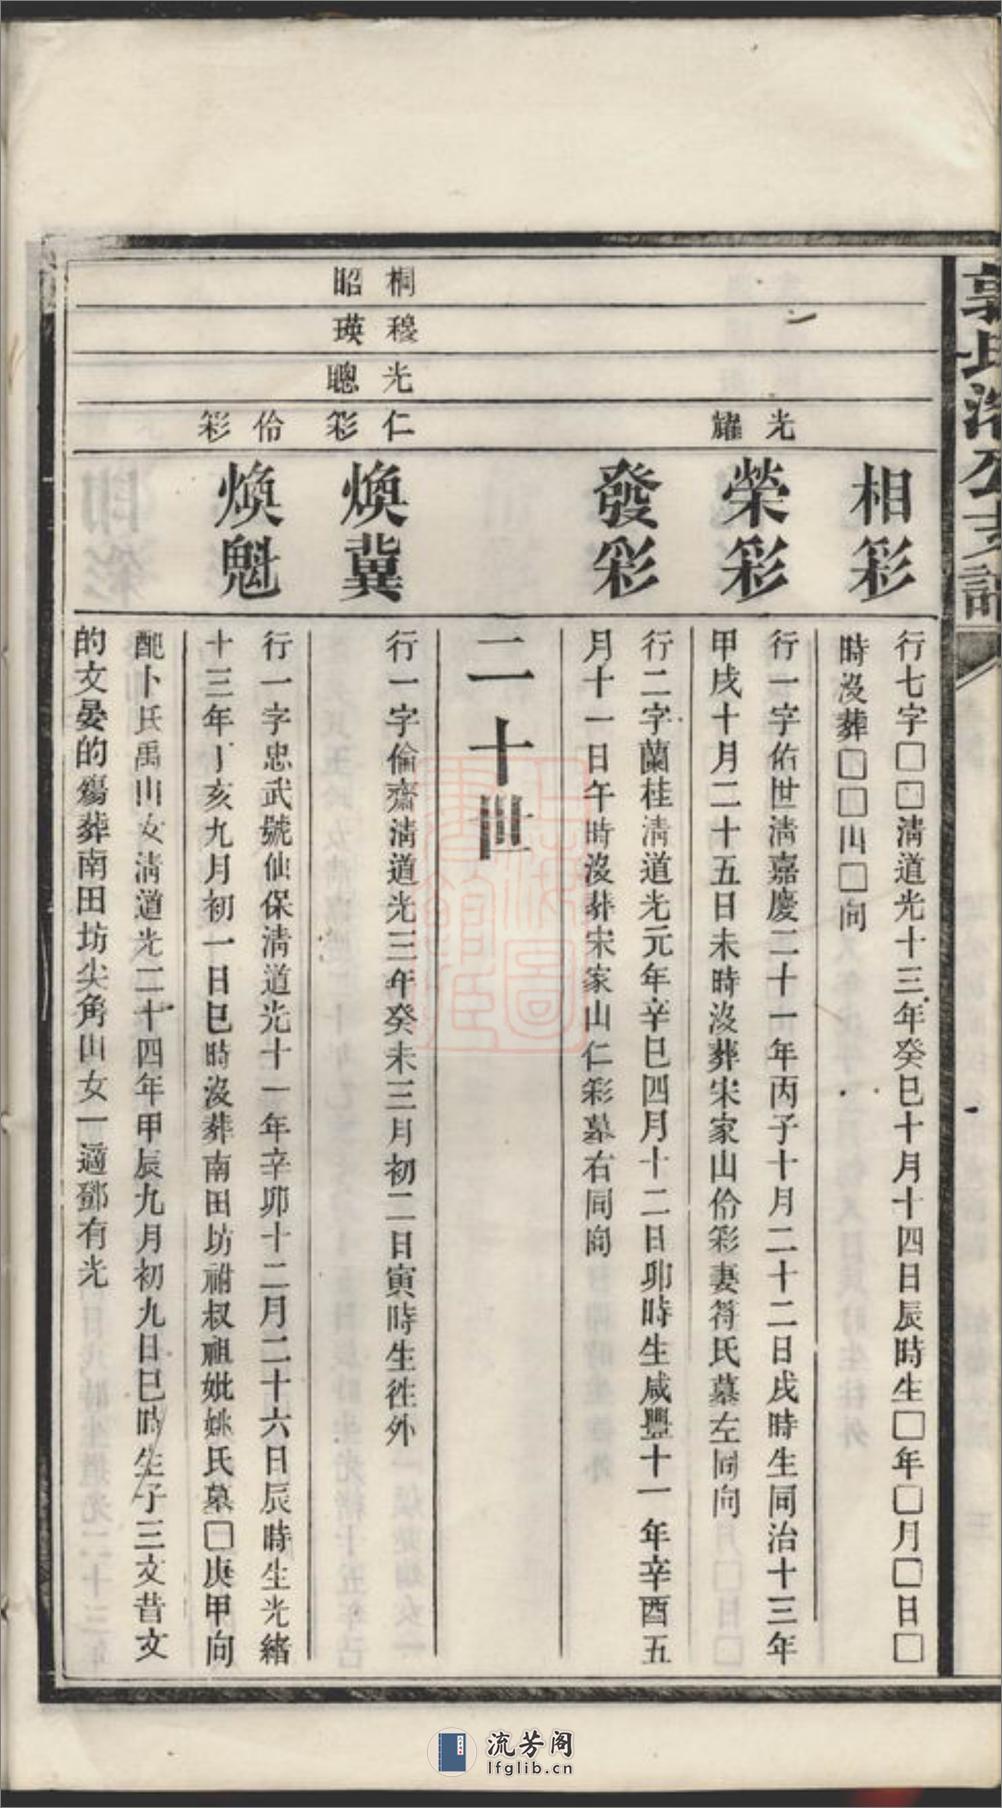 郭氏浩公支譜
相彩
行七字□□淸道光十三年癸巳十月十四日辰時生□年□月□日□
時沒葬□□山□向
光耀
榮彩
行一字佑世淸嘉慶二十一年丙子十月二十二日戌時生同治十三年
甲戌十月二十五日未時沒葬宋家山伶彩妻符氏墓左同向
發彩
行二字蘭桂淸道光元年辛巳四月十二日卯時生咸豐十一年辛酉五
月十一日午時沒葬宋家山仁彩墓右同向
二十世
桐昭
穆瑛
光聰
仁彩
煥冀
行一字倫齋淸道光三年癸未三月初二日寅時生徃外
伶彩
煥魁
行一字忠武號仙保淸道光十一年辛卯十二月二十六日辰時生光緒
十三年丁亥九月初一日巳時沒葬南田坊祔叔祖妣姚氏墓□庚甲向
配卜氏禹山女淸道光二十四年甲辰九月初九日巳時生子三文昔文
的文晏的殤葬南田坊尖角山女一適鄧有光
上海圖書館藏
流芳阁
lfglib.cn